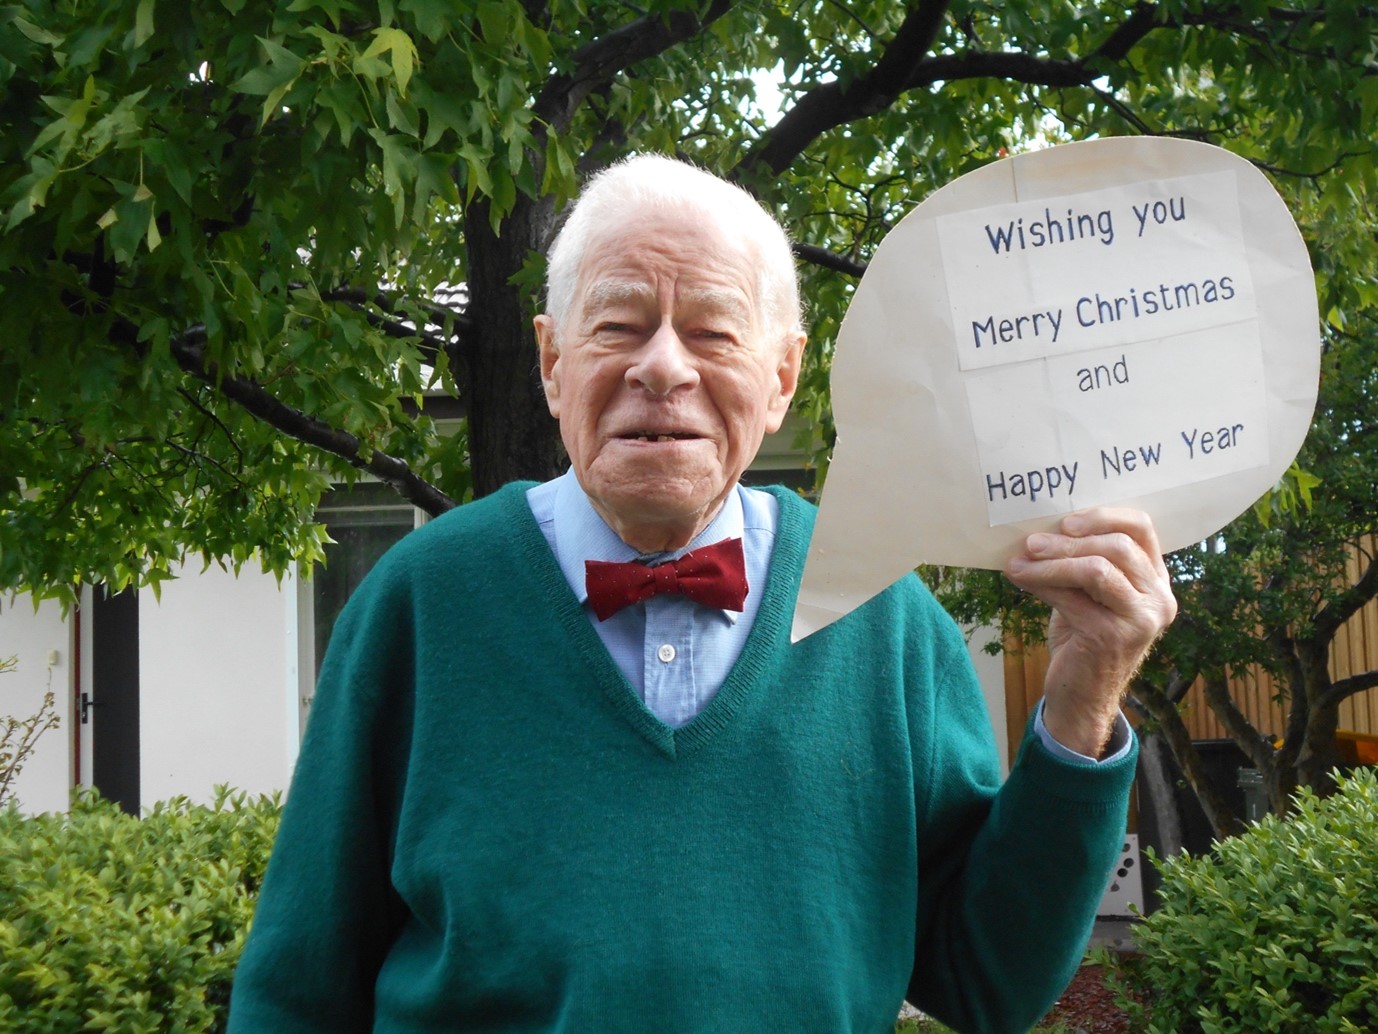 Wishing you
Merry Christmas
and
Happy New Year